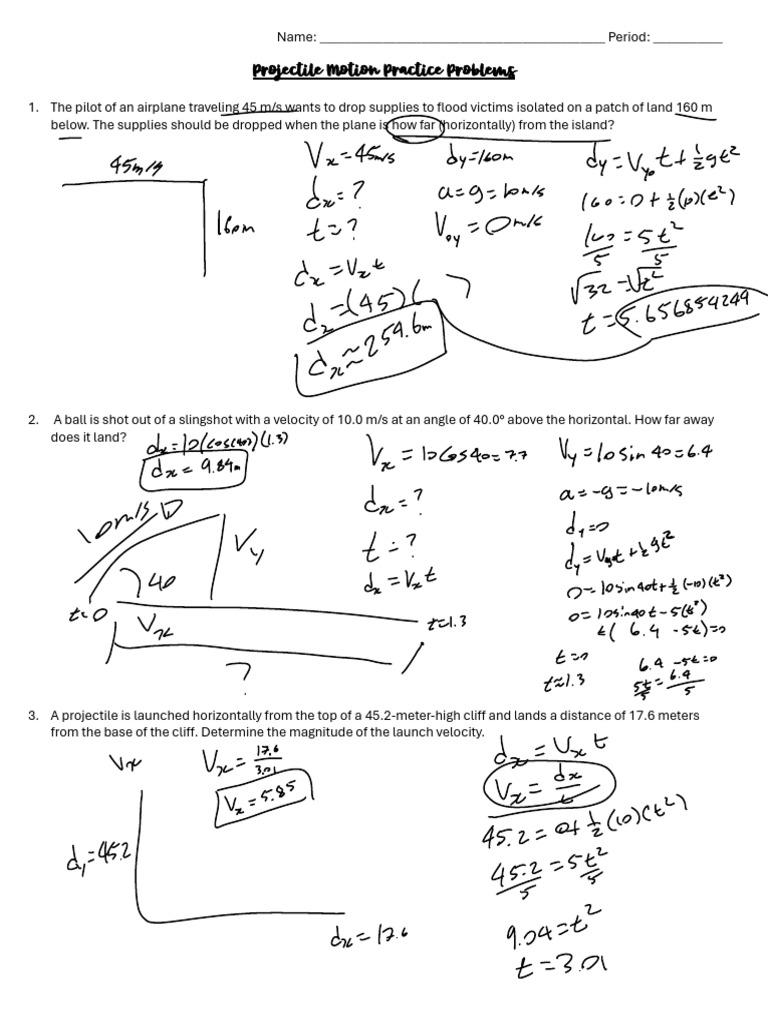 Name: ________________ Period: ________
Projectile Motion Practice Problems
1. The pilot of an airplane traveling 45 m/s wants to drop supplies to flood victims isolated on a patch of land 160 m
below. The supplies should be dropped when the plane is how far (horizontally) from the island?
45m/s
160m
Vx=45m/s
dx=?
t=?
dx=Vxt
dx=(45)( )
dx≈254.6m
dy=160m
a=g=10m/s
Voy=0m/s
dy=Vyot+½gt²
160=0+½(10)(t²)
160/5=5t²/5
√32=√t²
t=5.656854249
2. A ball is shot out of a slingshot with a velocity of 10.0 m/s at an angle of 40.0º above the horizontal. How far away
does it land?
dx=10(cos(40))(1.3)
dx=9.84m
10m/s
Vy
40
t=0
Vx
t=1.3
?
Vx=10cos40=7.7
dx=?
t=?
dx=Vxt
Vy=10sin40=6.4
a=-g=-10m/s
dy=0
dy=Vyot+½gt²
0=10sin40t+½(-10)(t²)
0=10sin40t-5(t²)
t(6.4-5t)=0
t=0
t≈1.3
6.4-5t=0
5t/5=6.4/5
3. A projectile is launched horizontally from the top of a 45.2-meter-high cliff and lands a distance of 17.6 meters
from the base of the cliff. Determine the magnitude of the launch velocity.
Vx
dy=45.2
dx=17.6
Vx=17.6/3.01
Vx=5.85
dx=Vxt
Vx=dx/t
45.2=0t½(10)(t²)
45.2/5=5t²/5
9.04=t²
t=3.01